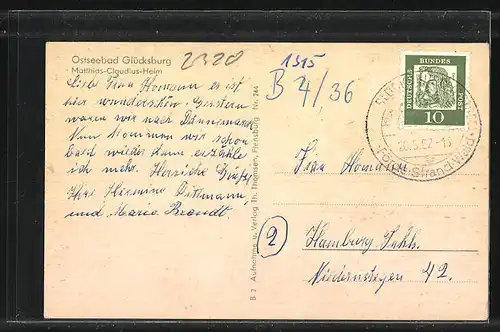 Ostseebad Glücksburg
Matthias-Claudius-Heim
2320
1315
B 4/36
Liebe Frau Homann es ist
hier wunderschön. Gestern
waren wir nach Dännemark
Nun kommen wir schon
bald wieder dann erzähle
ich mehr. Herzliche Grüße
Ihre Hermine Dittmann,
und Marie Brandt
B 2 Aufnahme u. Verlag Th. Thomsen, Flensburg Nr. 244
DEUTSCHE BUNDES POST
10
.5.62.-13
Förde-Strand-Wald
Frau Homann
2 Hamburg
42.